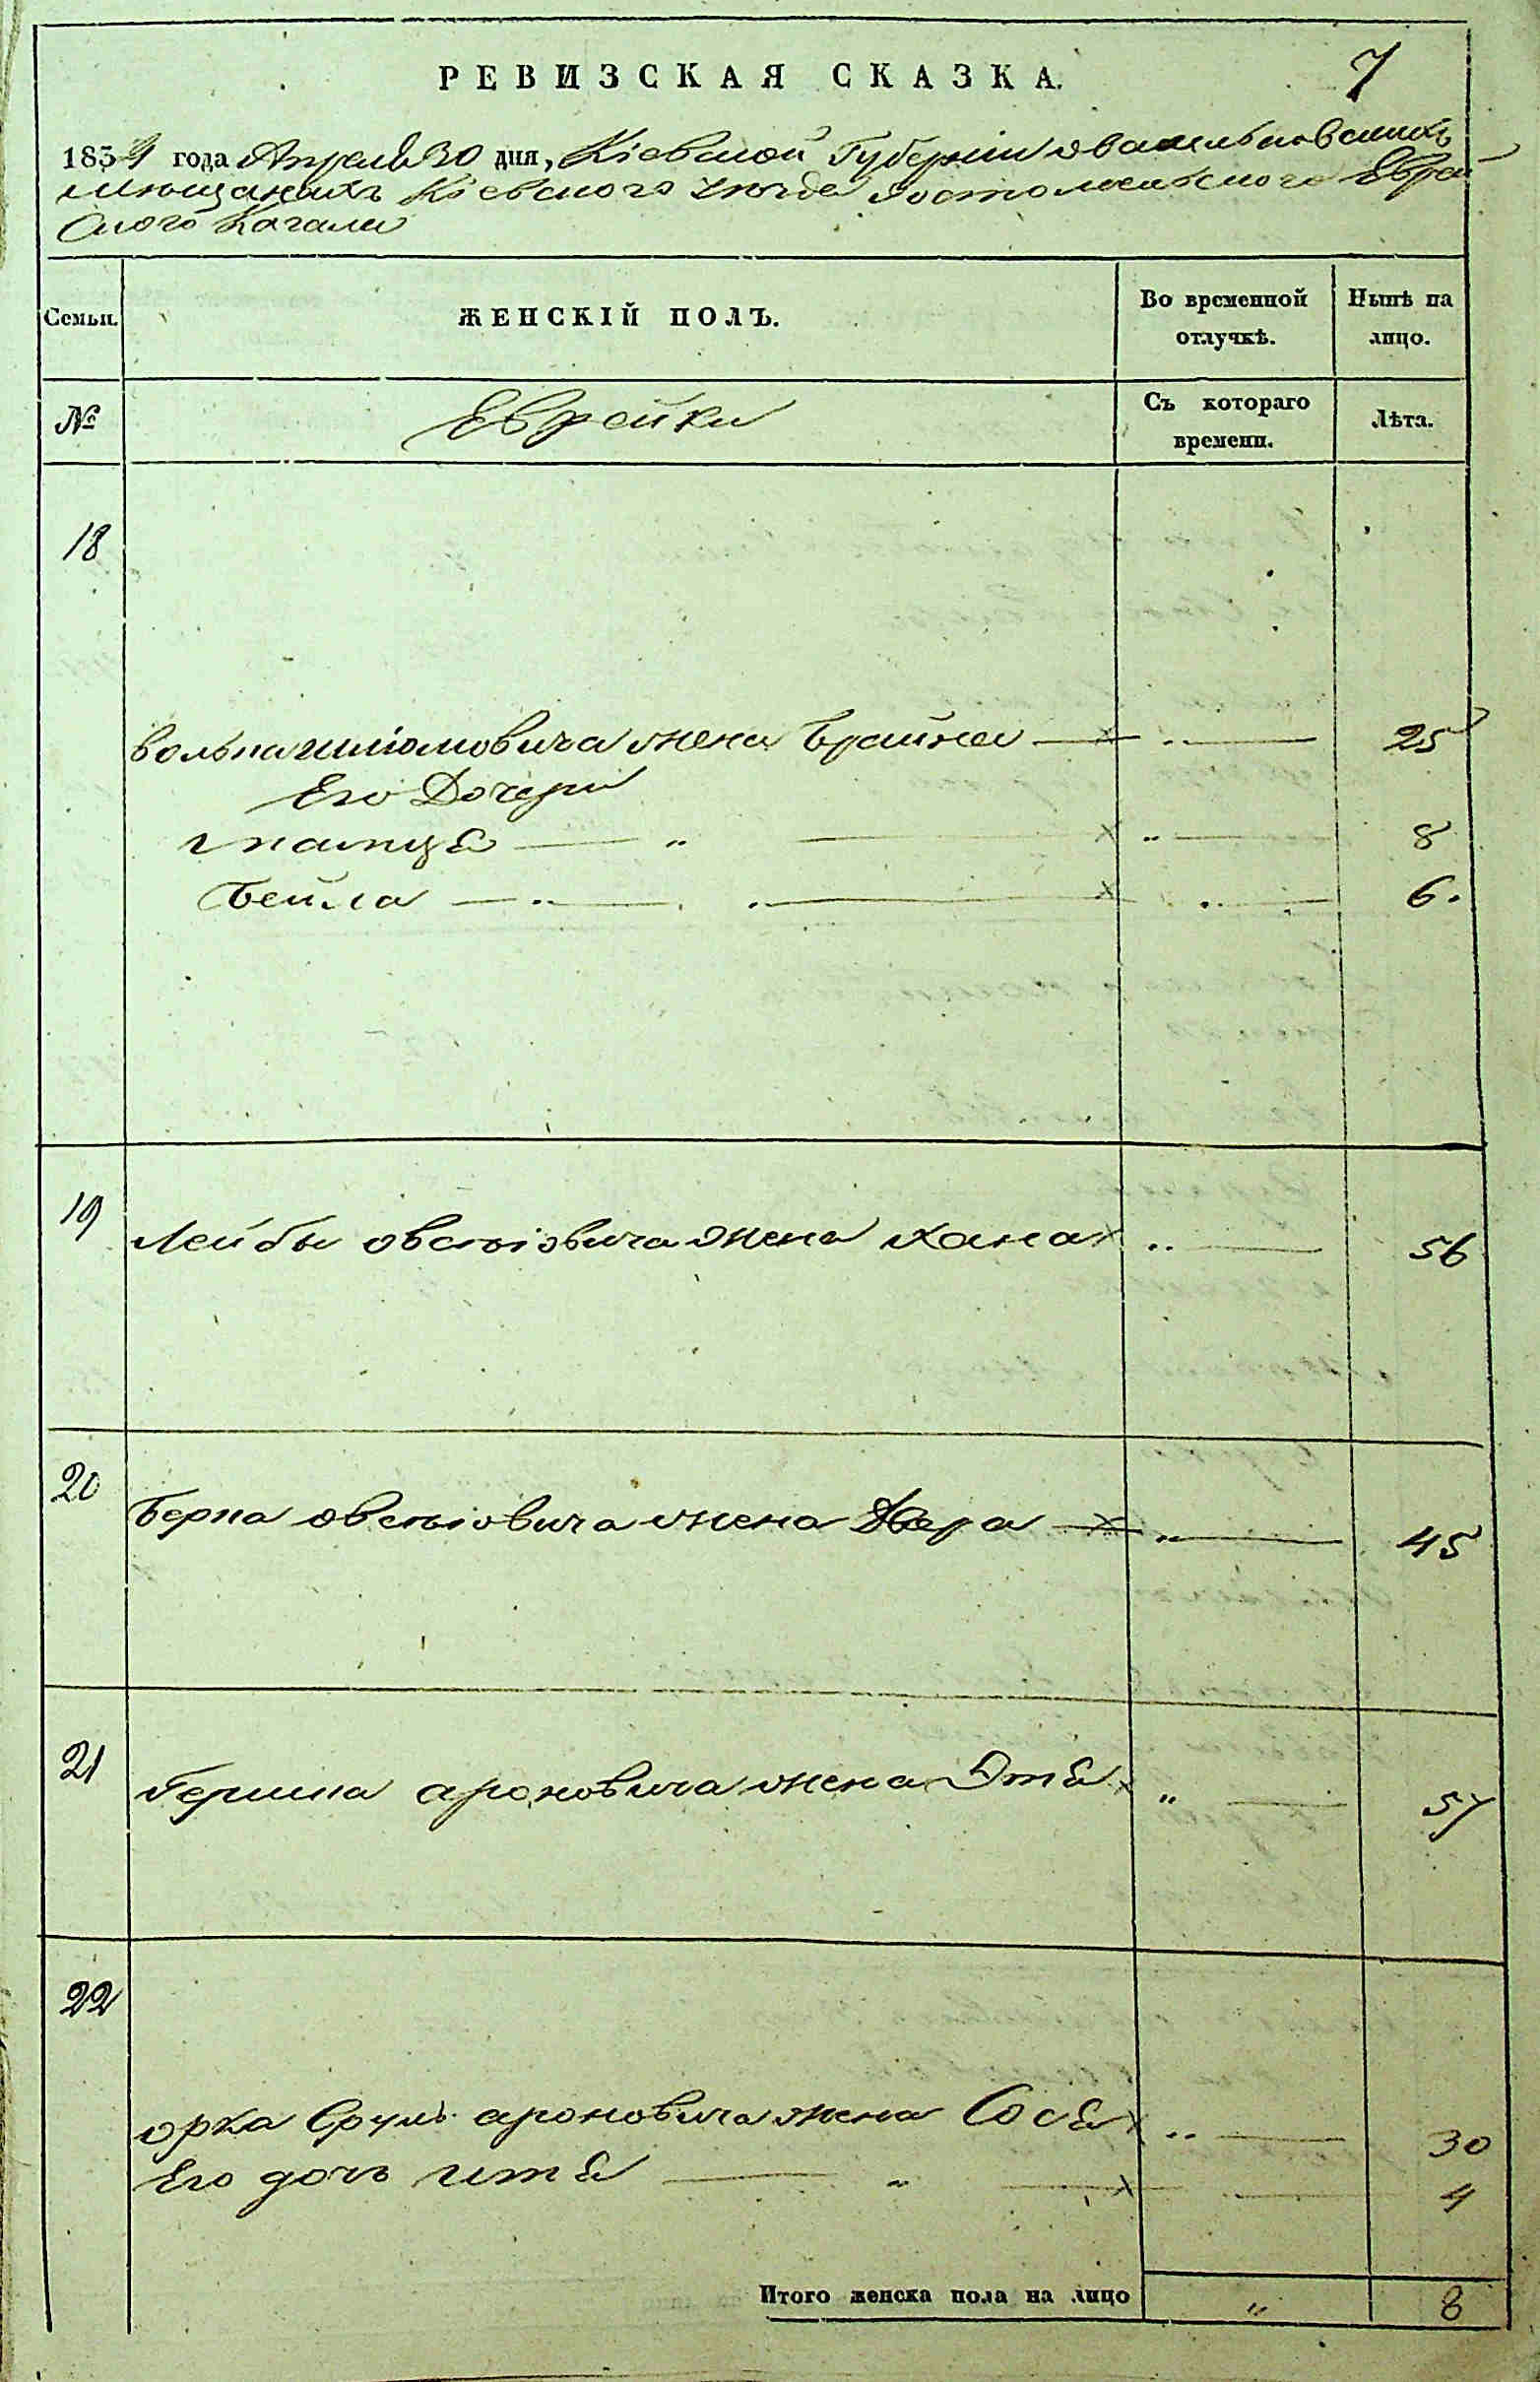 РЕВИЗСКАЯ СКАЗКА.
7
1834 года Апреля 30 дня, Кіевской Губерніи о васильковскихъ
мещанахъ Кіевского уезда Гостомельского Еврей
ского Кагала
Семьи.
ЖЕНСКІЙ ПОЛЪ.
Во временной отлучкѣ.
Нынѣ на лицо.
№
Еврейки
Съ котораго времени.
Лѣта.
18
Волька шліомовича жена Брайна 25
Его Дочери
8
Бейла 6.
19
Лейбы овсіовича жена хана 56
20
Берка овсіовича жена 45
21
Гершка ароновича жена Этя 57
22
орка Сруль ароновича жена Сося 30
Его дочь итя 4
Итого женска пола на лицо " 8